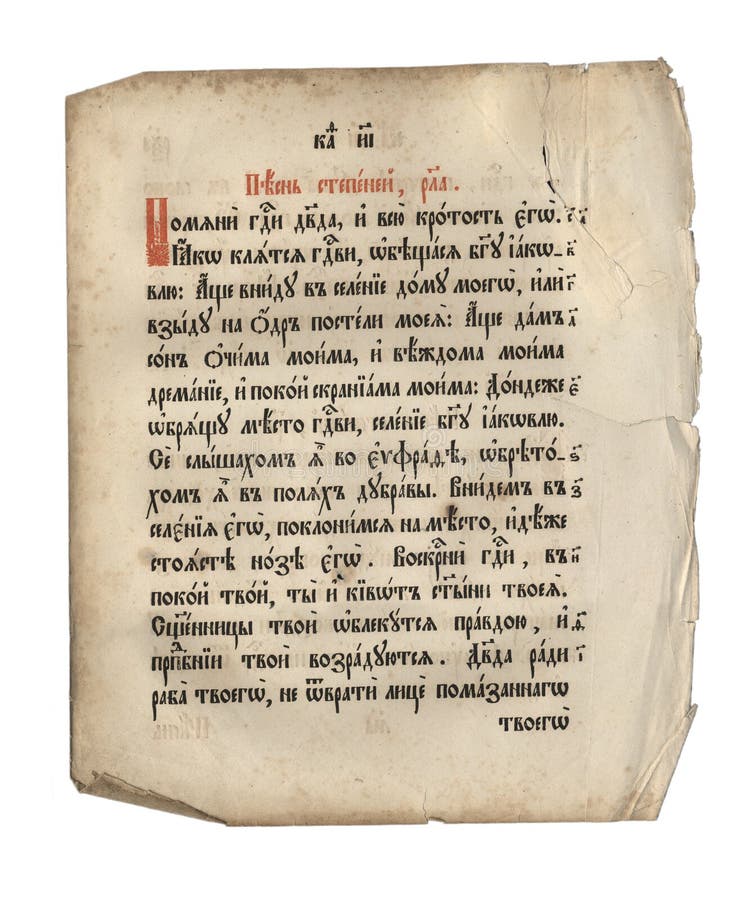 каѳ҃ и҃і
Пѣснь степе́ней, рл҃а.
Помѧнѝ гдⷭ҇и дв҃да, и҆ всю̀ кро́тость є҆гѡ̀. а҃
Ꙗ҆́кѡ клѧ́тсѧ гдⷭ҇ви, ѡ҆бѣща́сѧ бг҃ꙋ і҆а́кѡ- в҃
влю: А҆́ще вни́дꙋ въ селе́нїе до́мꙋ моегѡ̀, и҆лѝ г҃
взы́дꙋ на ѻ҆́дръ посте́ли моеѧ̀: А҆́ще да́мъ д҃
со́нъ ѻ҆чи́ма мои́ма, и҆ вѣ́ждома мои́ма
дрема́нїе, и҆ поко́й скранїа́ма мои́ма: До́ндеже є҃
ѡ҆брѧ́щꙋ мѣ́сто гдⷭ҇ви, селе́нїе бг҃ꙋ і҆а́кѡвлю.
Сѐ слы́шахомъ ѧ҆̀ во є҆ѵфра́ѳѣ, ѡ҆брѣто́- ѕ҃
хомъ ѧ҆̀ въ полѧ́хъ дꙋбра́вы. Вни́демъ въ з҃
селє́нїѧ є҆гѡ̀, поклони́мсѧ на мѣ́сто, и҆дѣ́же
стоѧ́стѣ но́зѣ є҆гѡ̀. Воскрⷭ҇нѝ гдⷭ҇и, въ и҃
поко́й тво́й, ты̀ и҆ кївѡ́тъ ст҃ы́ни твоеѧ̀.
Сщ҃е́нницы твоѝ ѡ҆блекꙋ́тсѧ пра́вдою, и҆ ѳ҃
прпⷣбнїи твоѝ возра́дꙋютсѧ. Дв҃да ра́ди і҃
раба̀ твоегѡ̀, не ѿвратѝ лицѐ пома́заннагѡ
твоегѡ̀